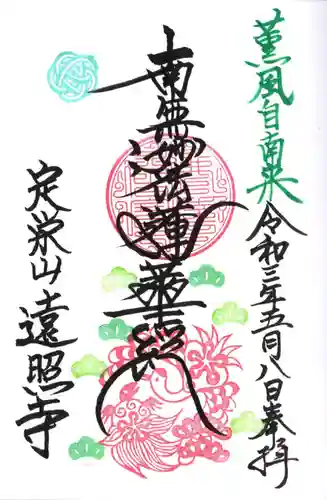 薫風自南来
令和三年五月八日奉拝
南無妙法蓮華経
定栄山遠照寺